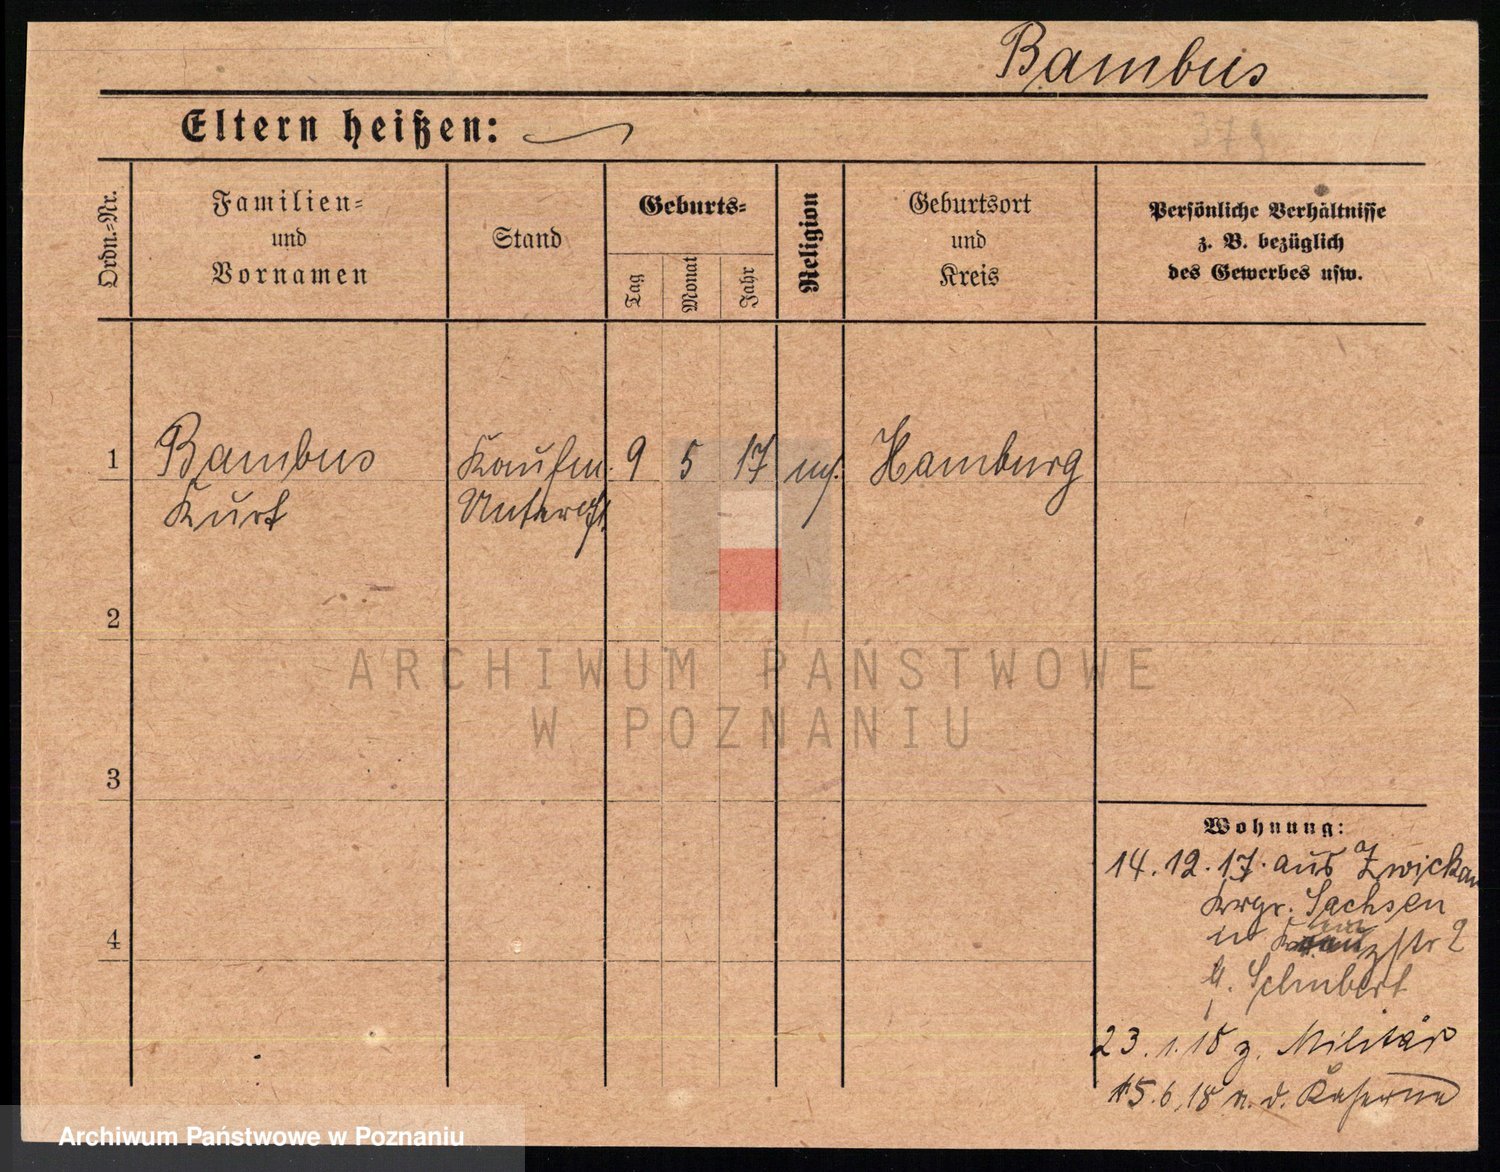 Bambus
Eltern heißen:
Ordn.-Nr.
Familien-
und
Vornamen
Stand
Geburts-
Tag
Monat
Jahr
Religion
Geburtsort
und
Kreis
Persönliche Verhältnisse
z. B. bezüglich
des Gewerbes usw.
1
Bambus
Kurt
Kaufm.
9
5
17
Hamburg
2
3
4
Wohnung:
14.12.17. aus Zwickau
Sachsen
str 2
Schubert
23.1.18 z. Militär
15.6.18 n. d. Kaserne
ARCHIWUM PAŃSTWOWE
W POZNANIU
Archiwum Państwowe w Poznaniu